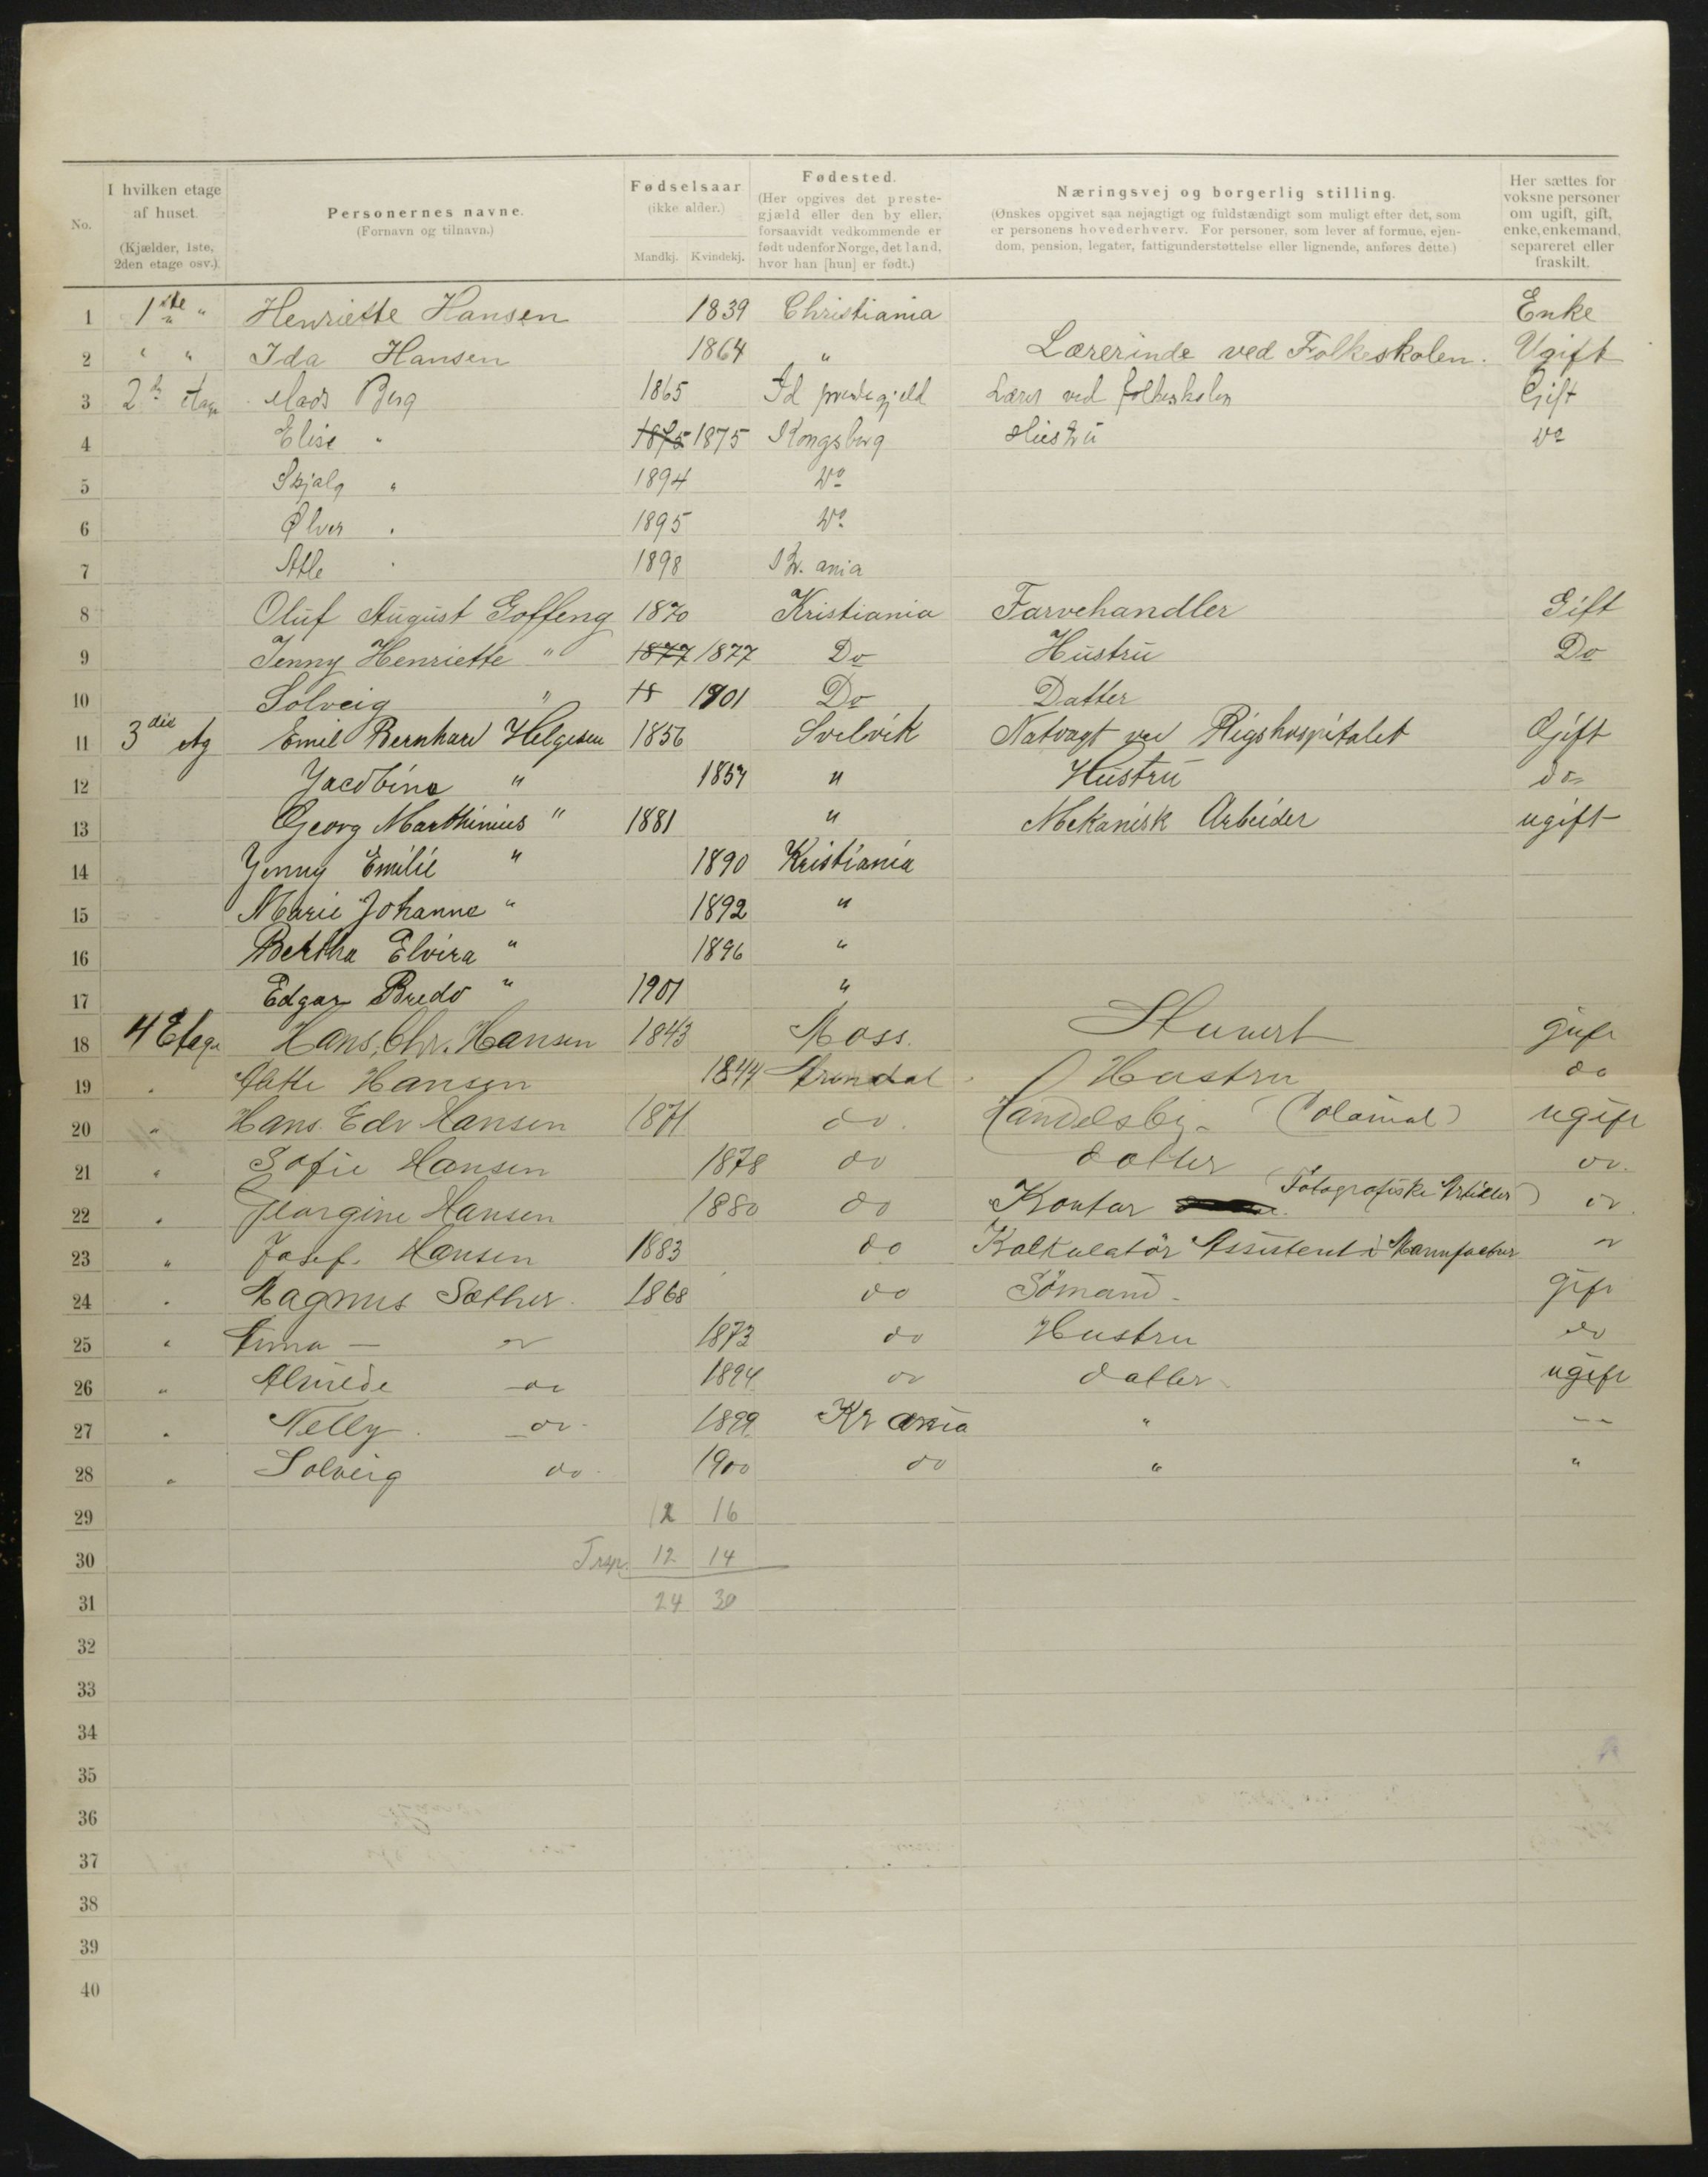 No.
I hvilken etage af huset. (Kjælder, 1ste, 2den etage osv.).
Personernes navne. (Fornavn og tilnavn.)
Fødselsaar (ikke alder.) Mandkj. Kvindekj.
Fødested. (Her opgives det prestegjæld eller den by eller, forsaavidt vedkommende er født udenfor Norge, det land, hvor han [hun] er født.)
Næringsvej og borgerlig stilling. (Ønskes opgivet saa nøjagtigt og fuldstændigt som muligt efter det, som er personens hovederhverv. For personer, som lever af formue, ejendom, pension, legater, fattigunderstøttelse eller lignende, anføres dette.)
Her sættes for voksne personer om ugift, gift, enke, enkemand, separeret eller fraskilt.
1 1ste " Henriette Hansen 1839 Christiania Enke
2 " " Ida Hansen 1864 " Lærerinde ved Folkeskolen. Ugift
3 2 etage Mads Berg 1865 Id prestegjeld Lærer ved folkeskolen Gift
4 Elise " 1875 1875 Kongsberg Hustru Do
5 Skjalg " 1894 Do
6 Ølver " 1895 Do
7 Atle " 1898 Kr. ania
8 Oluf August Goffeng 1870 Kristiania Farvehandler Gift
9 Jenny Henriette " 1877 1877 Do Hustru Do
10 Solveig " 18 1901 Do Datter
11 3die Etg Emil Bernhard Helgesen 1856 Svelvik Natvagt ved Rigshospitalet Gift
12 Jacobine " 1857 " Hustru do
13 Georg Marthinius " 1881 " Mekanisk Arbeider ugift
14 Jenny Emilie " 1890 Kristiania
15 Marie Johanne " 1892 "
16 Bertha Elvira " 1896 "
17 Edgar Bredo " 1901 "
18 4 Etage Hans. Chr. Hansen 1843 Moss. Stuert gift
19 " Hansen 1844 Arendal Hustru do
20 " Hans. Edv Hansen 1871 do. Handelsbj. (Colonial) ugift
21 " Sofie Hansen 1878 do datter do.
22 " Georgine Hansen 1880 do Kontor (Fotografiske Artikler) do.
23 " Josef. Hansen 1883 do Kalkulatör Assistent i Mannfactur do
24 " Magnus Sæther. 1868 do Sömand. gift
25 " Anna — do 1873 do Hustru do
26 " do 1894 do datter ugift
27 " Nelly. do. 1899 Kr ania " --
28 " Solveig do. 1900 do " "
29 12 16
30 Trsp. 12 14
31 24 30
32
33
34
35
36
37
38
39
40